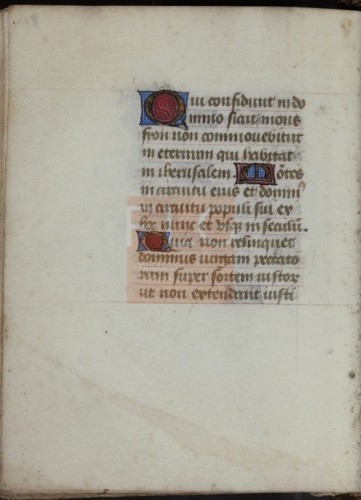 Qui confidunt in do
mino sicut mons
syon non commovebitur
in eternum qui habitat
in iherusalem Mõtes
in circuitu eius et domin⁹
in circuitu populi sui ex
hoc nunc et usq̃ in seculũ.
Quia non relinquet
dominus virgam peccato
rum super sortem iustor
ut non extendant iusti